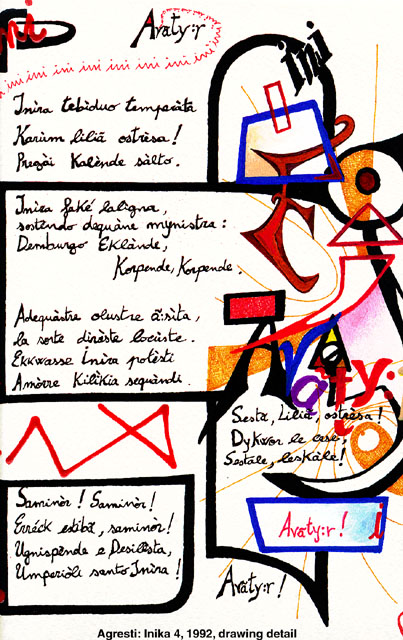 ini
Avaty:r
ini
ini ini ini ini ini ini ini ini
Inira tebìduo temperàta
Karìm liliã ostrèsa!
Pregãi Kalènde sàlto.
Inira faké laligna,
sostendo dequàne mynistra:
Demburgo Eklànde,
Korpende, Korpende.
Adequàstre olustre ã:sìta,
la sorte dirèste locùste.
Ekkwasse Inira potèsti
Amòrre Kilikia sequàndi.
Avaty:r
Sesta, Liliã, ostrèsa!
Dykwor le case,
Sestale, leskàle!
Saminòr! Saminòr!
Erréck estibã, saminòr!
Ugnispènde e Desilèsta,
Umperiòli santo Inira!
Avaty:r! i
Avaty:r!
Agresti: Inika 4, 1992, drawing detail